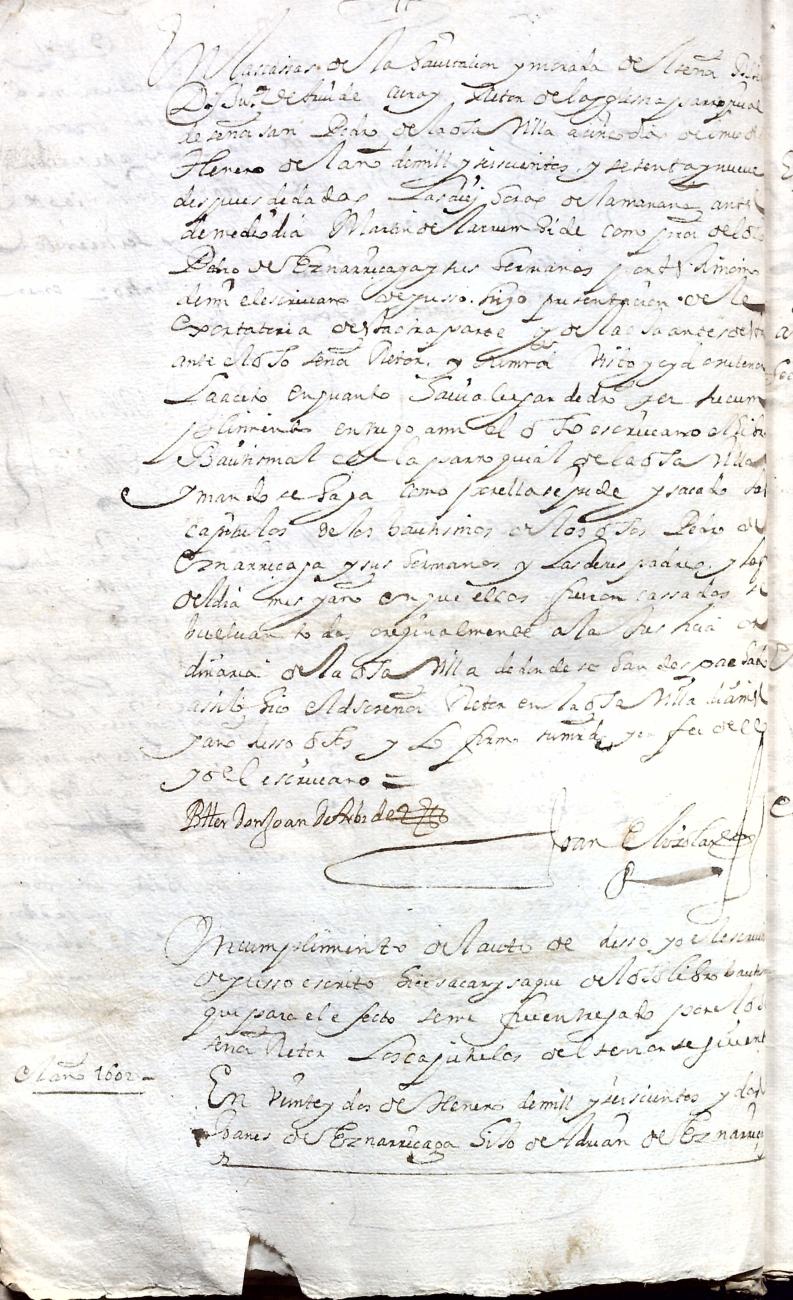 En las cassas de la havitacion y morada de el señor
Don Ju.º de Arbide cura y Retor de la yglesia parroquial
de señor san Pedro de la dha Villa a cinco dias de el mes de
Henero de el año de mill y seiscientos y sesenta y nueve
despues de dadas las diez horas de la mañana antes
de mediodia Martin de Larrumbide como pror de los
Pedro de Eznarriçaga y sus hermanos por testimonio
de mi el escrivano de yusso hizo presentacion de la
exortatoria de la otra parte y de la
ante el dho señor Retor, y su mrd visto y oyd
la aceto en quanto havia lugar de dro y en su cum
plimiento entrego a mi el dho escrivano el libro
Bautismal de la parroquial de la dha Villa
y mando se haga como por ella se pide y sacado los
capitulos de los bautismos de los dhos Pedro de
Eznarriçaga y sus hermanos y las de sus padres, y
del dia mes y año en que ellos fueron cassados se
buelvan todos originalmente a la Justicia or
dinaria de la dha Villa de donde se han despachado
assi lo hizo el dho señor Retor en la dha Villa dia mes
y año susso dhos y lo firmo su mrd, y en fee de ello
yo el escrivano =
Bller Don Joan de Arbide
Joan de Elizalde
En cumplimiento de el auto de susso, yo el escrivano
de yusso escrito hice sacar y saque de el dho libro bautis
que para el efecto se me fue entregado por el dho
señor Retor los capitulos de el tenor seguiente
El año 1602
En veinte y dos de Henero de mill y seiscientos y dos
de Eznarriçaga hijo de Adrian de Eznarriç